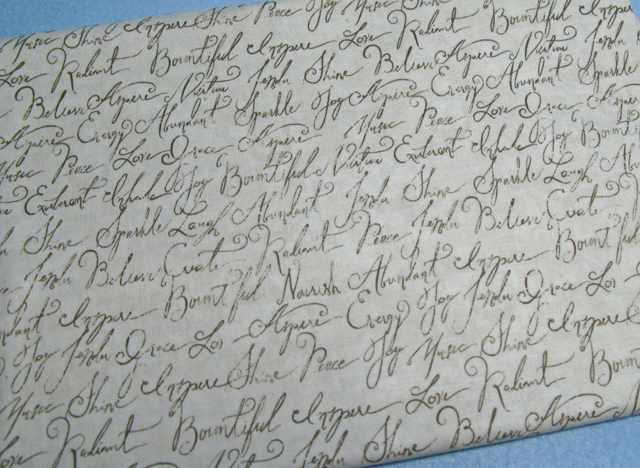 Music Shine Inspire Shine Peace Joy
Love Radiant Bountiful Inspire Love Radiant Bountiful Inspire
Believe Aspire Virtue Shine Believe Aspire Virtue
Aspire Energy Abundant Sparkle Joy Aspire Energy Abundant Sparkle
Music Peace Love Grace Aspire Music Peace Love Grace
Exuberant Inhale Joy Bountiful Virtue Exuberant Inhale Joy Bount
Shine Sparkle Laugh Abundant Shine Sparkle Laugh Ab
Believe Create Radiant Peace Believe Create
Inspire Bountiful Nourish Abundant Inspire Bountiful
Joy Grace Lov Aspire Energy Joy Grace Lov
Music Shine Inspire Shine Peace Joy Music Shine Inspire
Love Radiant Bountiful Inspire Love Radiant Boun
Shine Believe Aspire